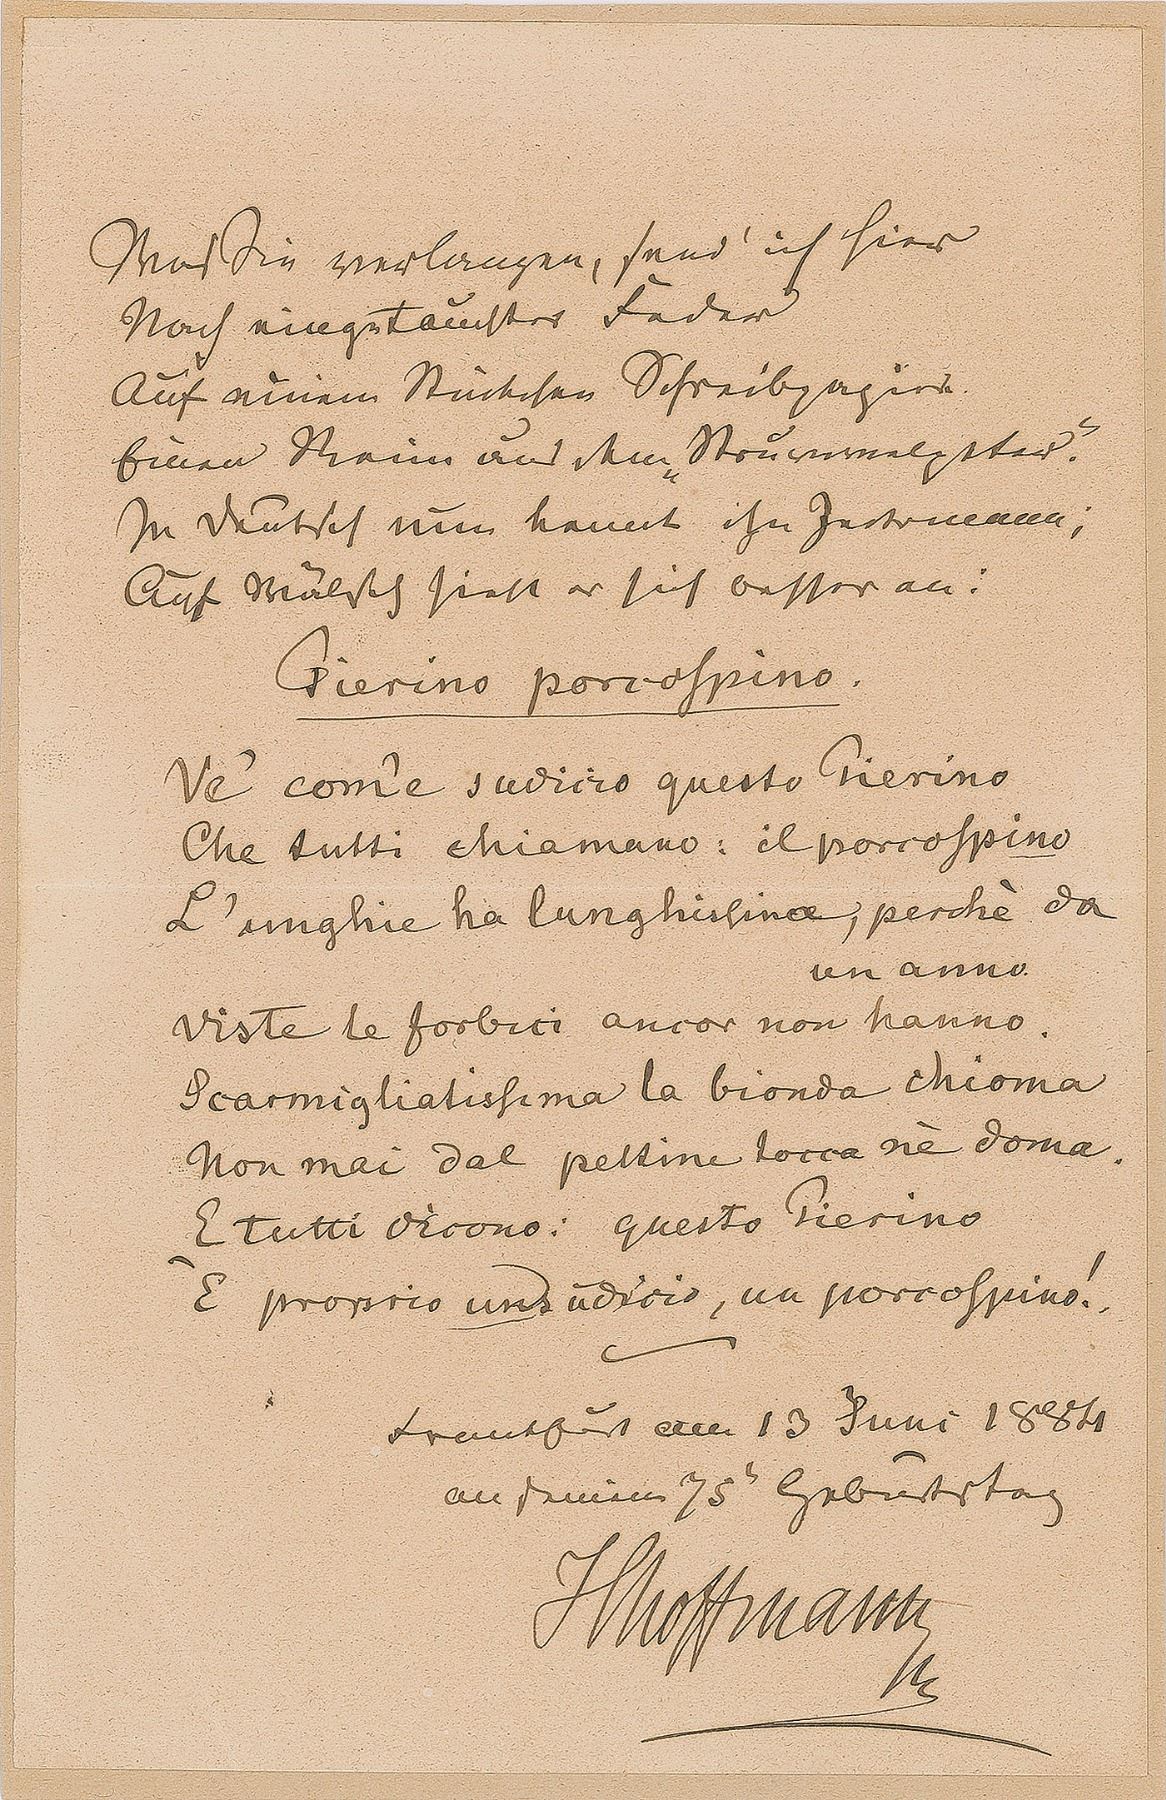 Was Sie verlangen, send' ich hier
Nach eingetauchter Feder
Auf einem Stückchen Schreibpapier
Einen Reim aus dem „Struwwelpeter“.
In Deutsch nun kennt ihn Jedermann;
Auf Wälsch sieht er sich besser an:
Pierino porcospino.
Ve' com'e sudicio questo Pierino
Che tutti chiamano: il porcospino
L'unghie ha lunghissime, perchè da
un anno
viste le forbici ancor non hanno.
Scarmigliatissima la bionda chioma
Non mai dal pettine tocca nè doma.
E tutti dicono: questo Pierino
È proprio un sudicio, un porcospino!
Frankfurt am 13 Juni 1884
an seinem 75' Geburtstag
HHoffmann